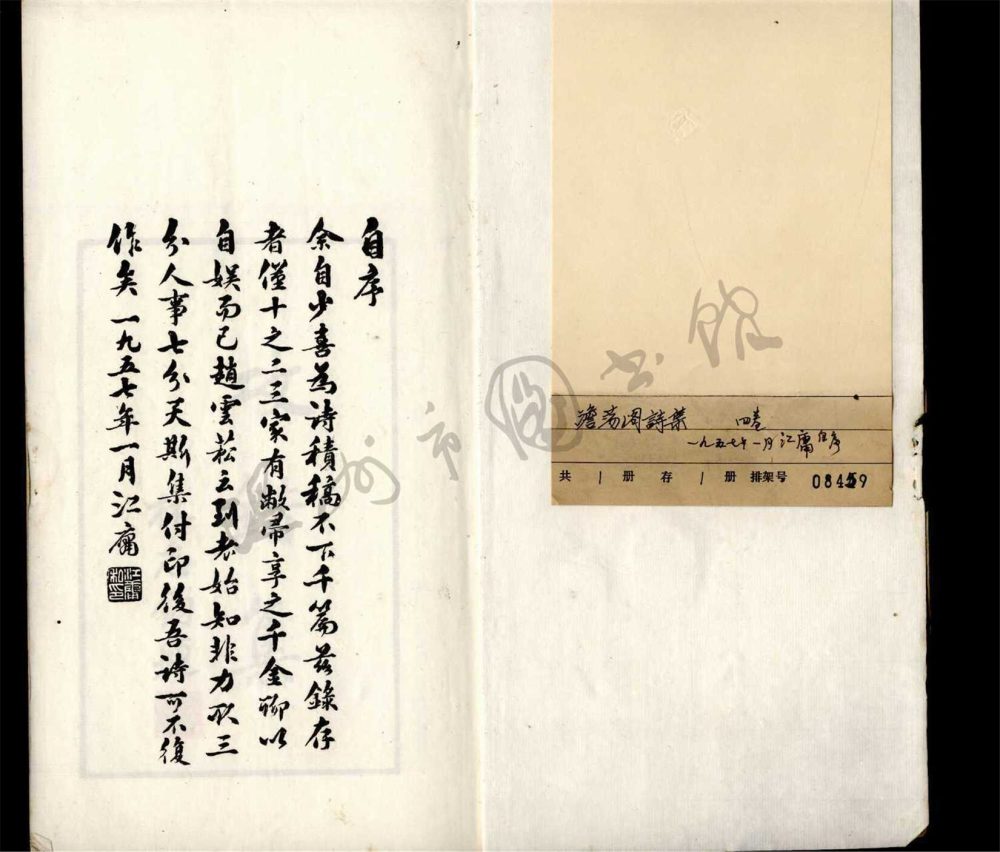 澹荡阁詩集 四卷
一九五七年一月江庸自序
共 1 册 存 1 册 排架号 08459
自序
余自少喜為詩積稿不下千篇茲錄存
者僅十之二三家有敝帚享之千金聊以
自娱而已趙雲菘云到老始知非力取三
分人事七分天斯集付印後吾詩可不復
作矣一九五七年一月江庸
温州市圖书馆